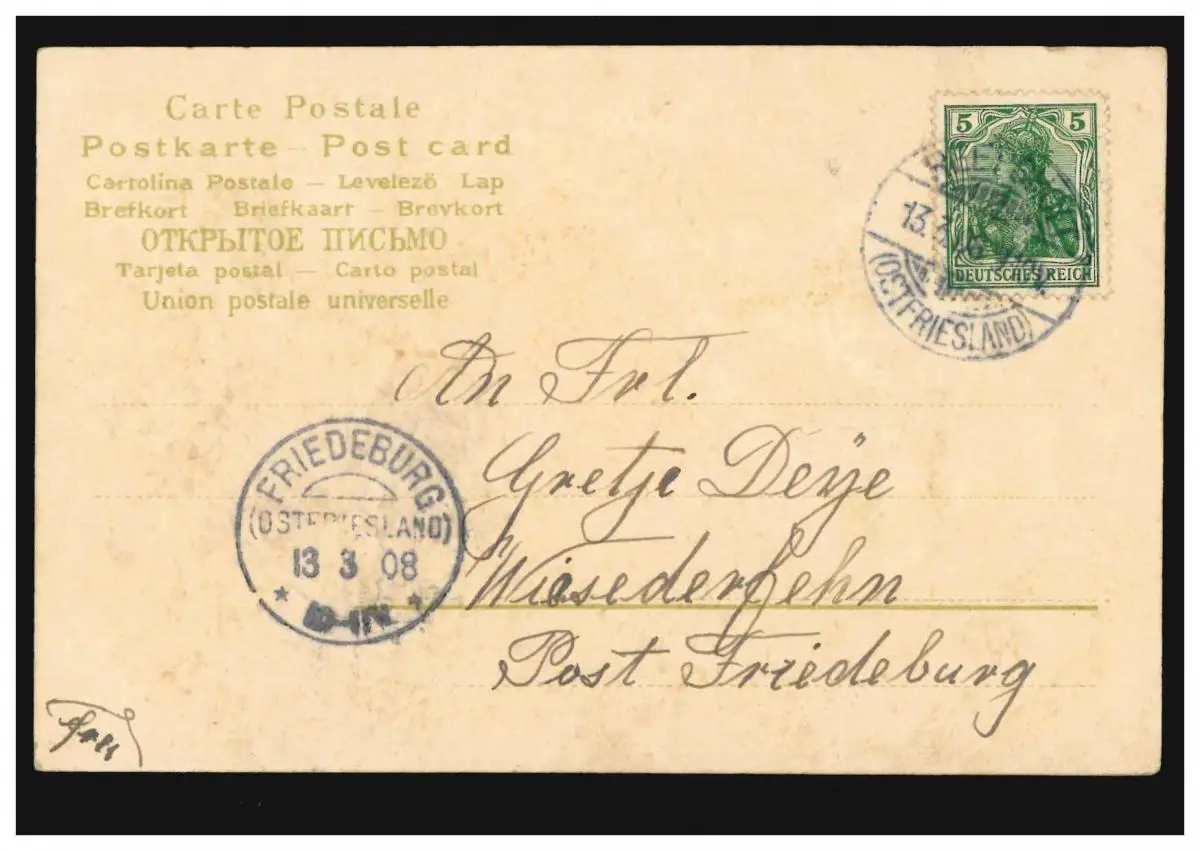 Carte Postale
Postkarte – Post card
Cartolina Postale – Levelező Lap
Brefkort Briefkaart – Brevkort
ОТКРЫТОЕ ПИСЬМО
Tarjeta postal – Carto postal
Union postale universelle
5 5
DEUTSCHES REICH
13.
(OSTFRIESLAND)
An Frl.
Gretje Deye
Wiesederfehn
Post Friedeburg
FRIEDEBURG
(OSTFRIESLAND)
13 3 08